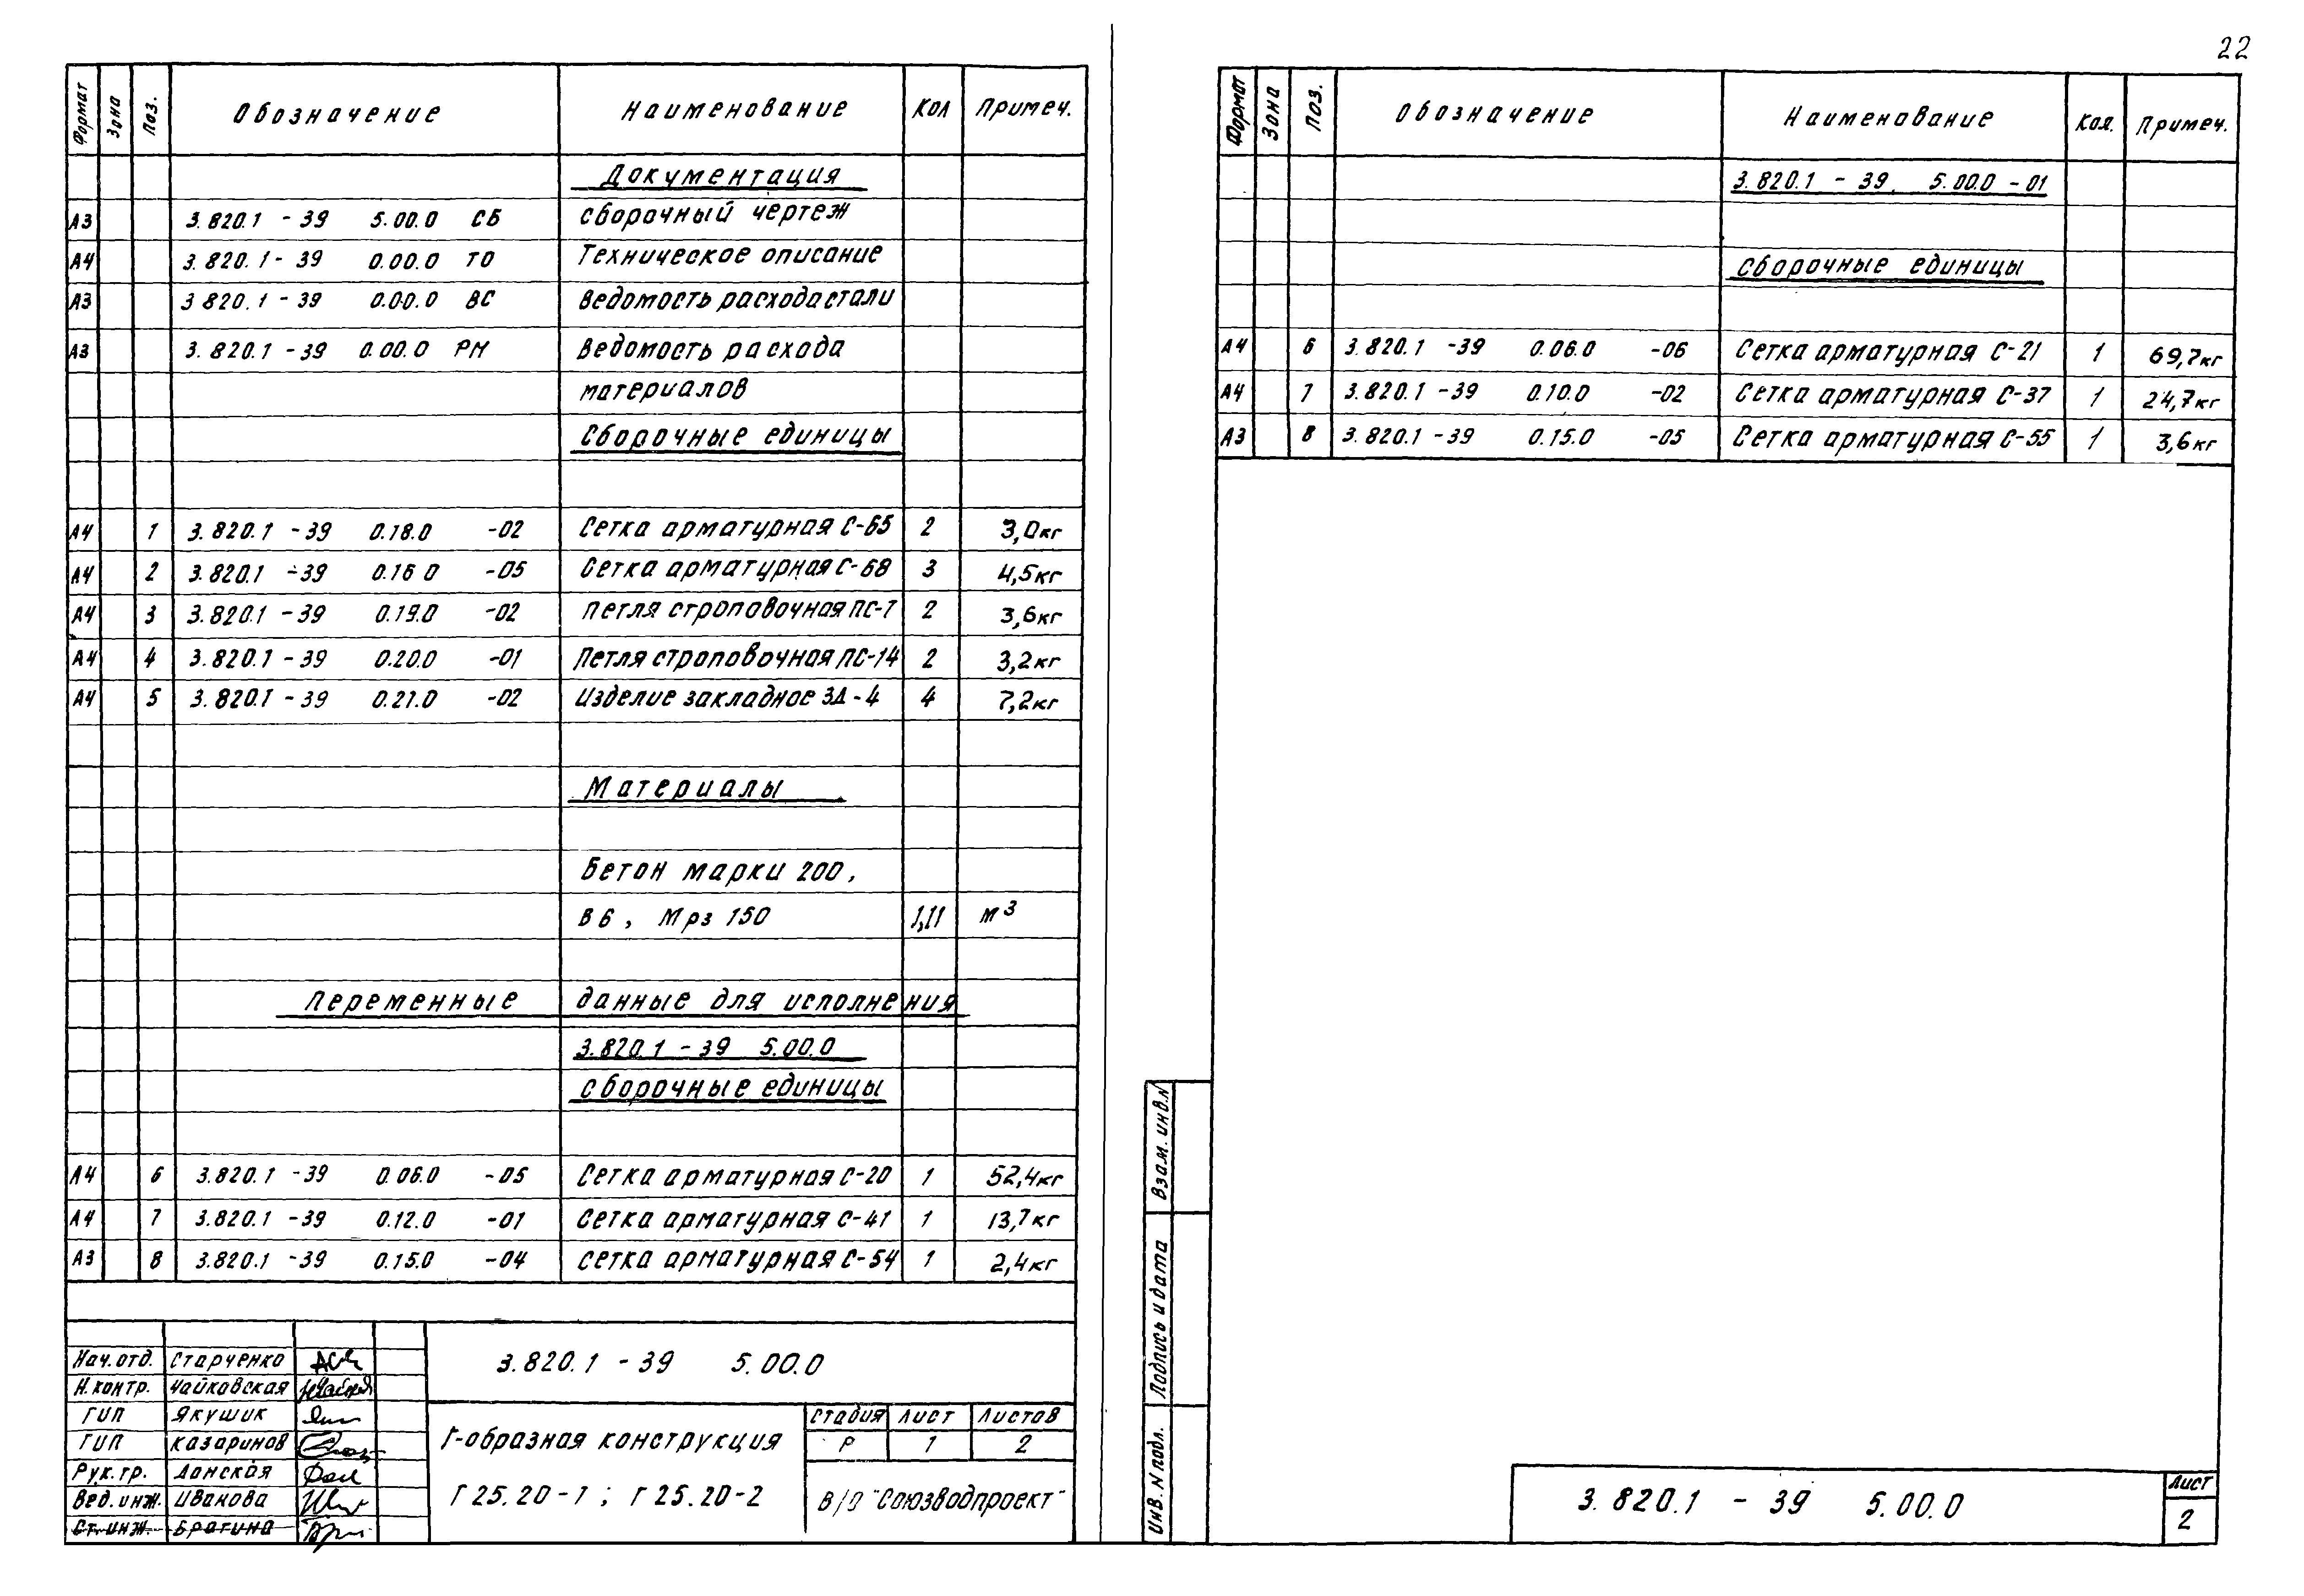 22
Формат Зона Поз. Обозначение Наименование Кол Примеч.
Документация
А3 3.820.1 - 39 5.00.0 СБ сборочный чертеж
А4 3.820.1 - 39 0.00.0 ТО Техническое описание
А3 3 820.1 - 39 0.00.0 ВС Ведомость расхода стали
А3 3.820.1 - 39 0.00.0 РМ Ведомость расхода
материалов
Сборочные единицы
А4 1 3.820.1 - 39 0.18.0 -02 Сетка арматурная С-65 2 3,0кг
А4 2 3.820.1 - 39 0.16 0 -05 Сетка арматурная С-68 3 4,5кг
А4 3 3.820.1 - 39 0.19.0 -02 Петля строповочная ПС-7 2 3,6кг
А4 4 3.820.1 - 39 0.20.0 -01 Петля строповочная ПС-14 2 3,2кг
А4 5 3.820.1 - 39 0.21.0 -02 Изделие закладное ЗД-4 4 7,2кг
Материалы
Бетон марки 200,
В6, Мрз 150 1,11 м³
Переменные данные для исполнения
3.820.1 - 39 5.00.0
сборочные единицы
А4 6 3.820.1 - 39 0.06.0 -05 Сетка арматурная С-20 1 52,4кг
А4 7 3.820.1 - 39 0.12.0 -01 Сетка арматурная С-41 1 13,7кг
А3 8 3.820.1 - 39 0.15.0 -04 Сетка арматурная С-54 1 2,4кг
3.820.1 - 39 5.00.0
Нач.отд. Старченко
Н.контр. Чайковская
ГИП Якушик
ГИП Казаринов
Рук.гр. Донская
Вед.инж. Иванова
Ст.инж. Брагина
Г-образная конструкция
Г 25.20-1; Г 25.20-2
Стадия Лист Листов
Р 1 2
В/О "Союзводпроект"
Формат Зона Поз. Обозначение Наименование Кол. Примеч.
3.820.1 - 39 5.00.0 -01
Сборочные единицы
А4 6 3.820.1 -39 0.06.0 -06 Сетка арматурная С-21 1 69,7кг
А4 7 3.820.1 -39 0.10.0 -02 Сетка арматурная С-37 1 24,7кг
А3 8 3.820.1 -39 0.15.0 -05 Сетка арматурная С-55 1 3,6кг
Взам. инв.N
Подпись и дата
Инв. N подл.
3.820.1 - 39 5.00.0
Лист
2